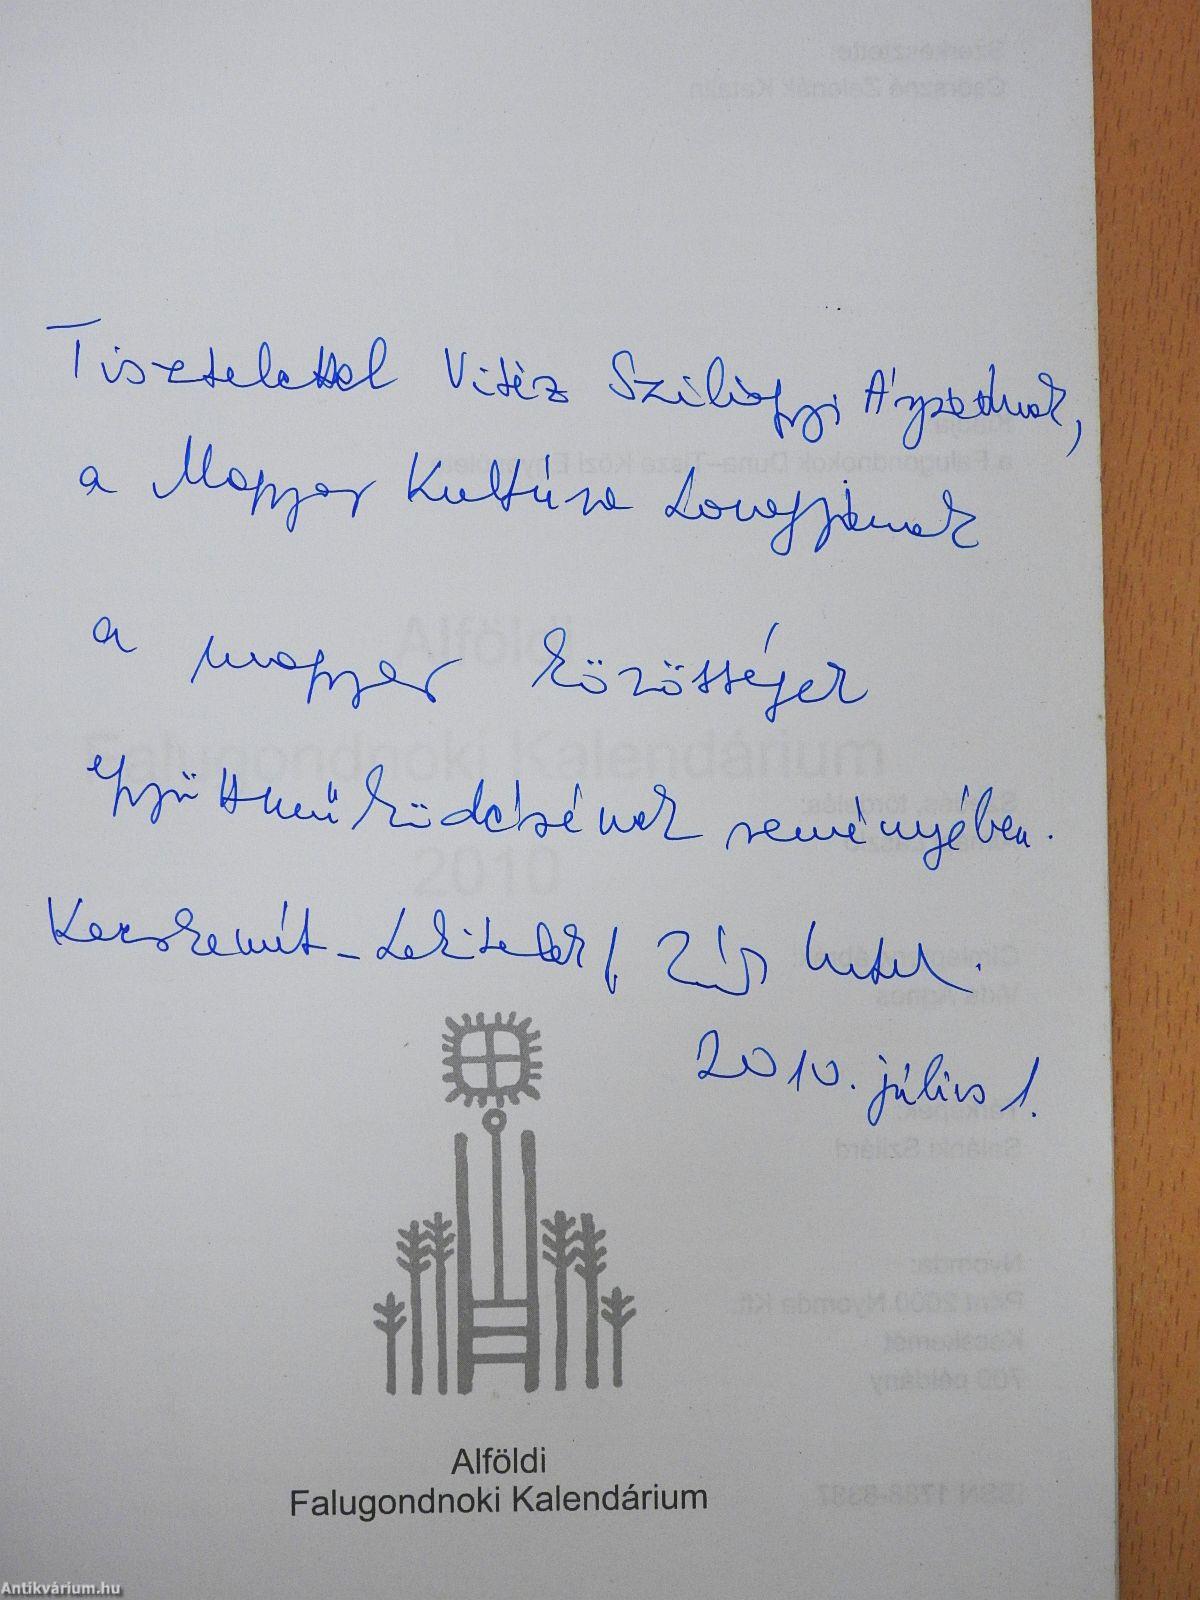 Tisztelettel Vitéz Szilágyi Árpádnak,
a Magyar Kultúra Lovagjának
a magyar közösségek
együttműködésének reményében.
Kecskemét
2010. július 1.
Alföldi
Falugondnoki Kalendárium
Antikvárium.hu